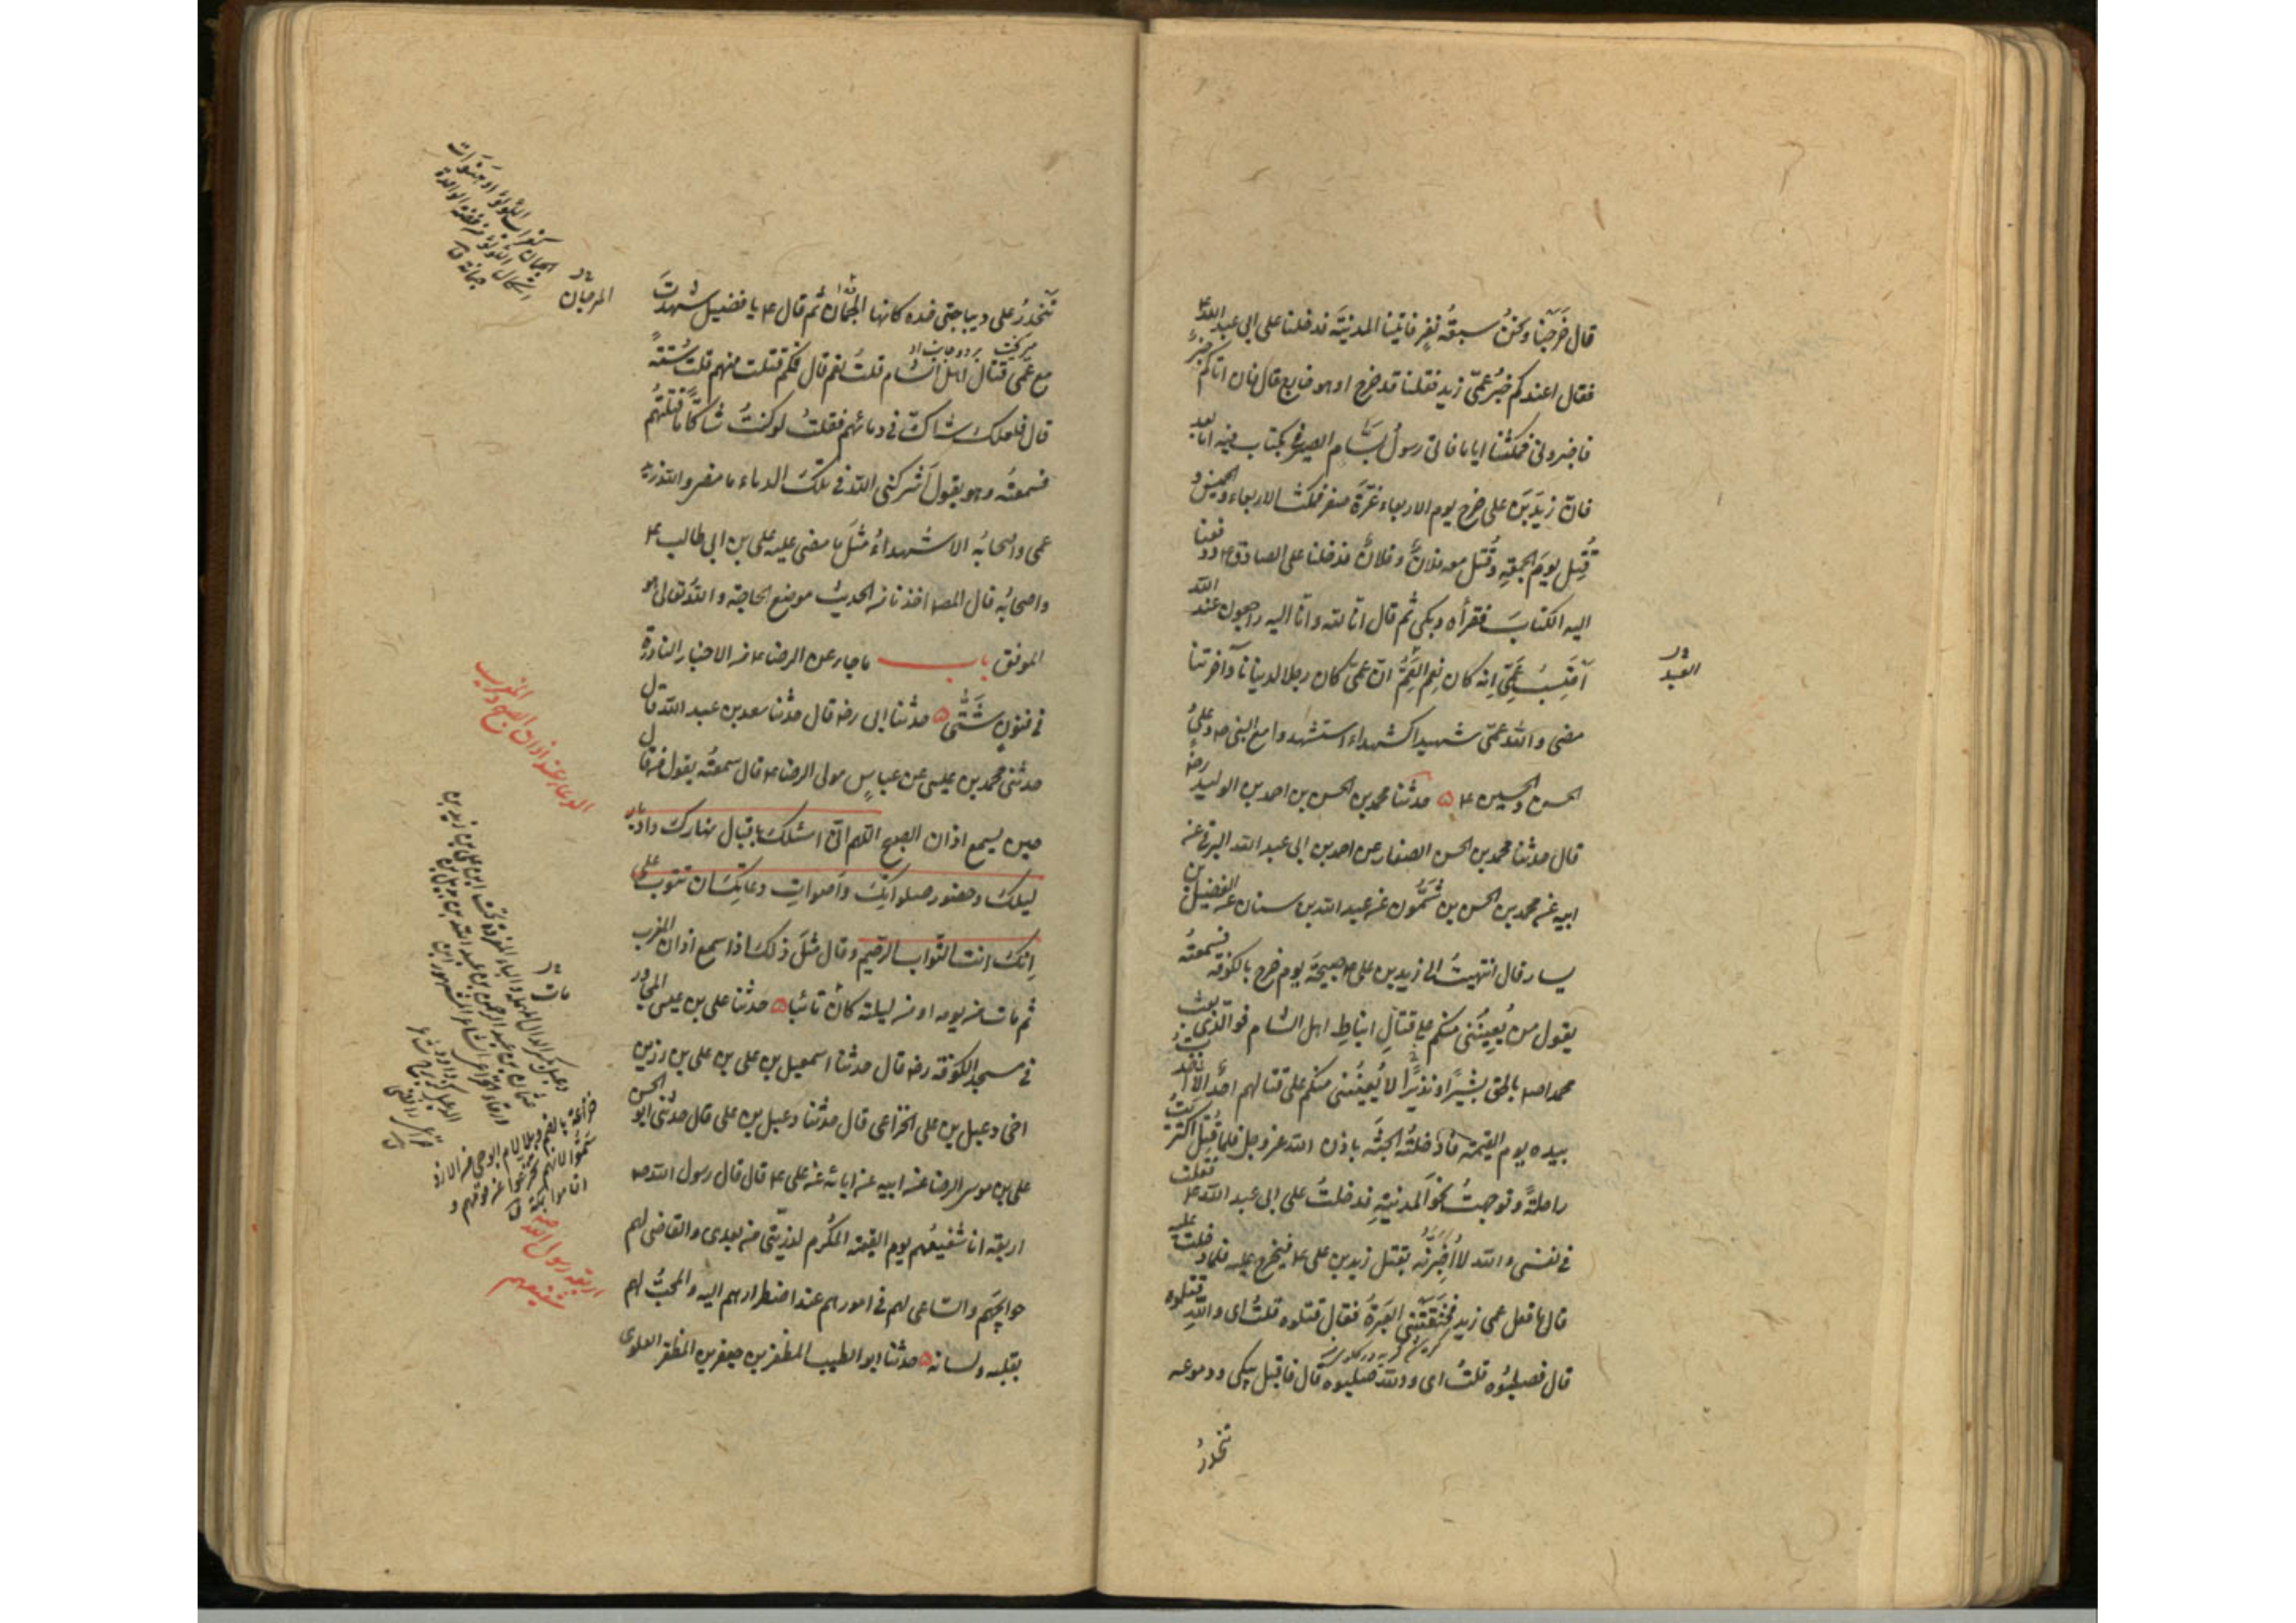 قال خَرَجْنا ونحنُ سبعة نفرٍ فاتينا المدينَةَ فدخلنا على ابى عبد اللهؑ
فقال اعندكم خَبَرُ عَمّى زيد فقلنا قد خرج او هو خارج قال فان اتاكم خبرٌ
فاخبرونى فمكثنا اياما فاتى رسولُ بسّام الصيرفى بكتاب فيه اما بعد
فانّ زيدَ بنَ على خرج يوم الاربعاء غرّةَ صفر فمكث الاربعاء والخميس و
قُتِل يومَ الجمعةِ وقُتل معه فلانٌ وفلانٌ فدخلنا على الصادقؑ ودفعنا
اليه الكتابَ فقرأه وبكى ثم قال انا لله وانا اليه راجعون عند الله
اَحتَسِبُ عَمّى اِنه كان نِعم العَمُّ انّ عمى كان رجلا لدنيانا وآخرتنا
العبد
مضى والله عمّى شهيدا كشهداء استشهدوا مع النبىؐ وعلىٍّ
الحسن والحسينؑ ۵ حدثنا محمد بن الحسن بن احمد بن الوليد رضه
قال حدثنا محمد بن الحسن الصفار عن احمد بن ابى عبد الله البرقى عن
ابيه عن محمد بن الحسن بن شَمُّون عن عبد الله بن سنان عن الفضيل بن
يسار قال انتهيتُ الى زيد بن علىؑ صبيحَةَ يوم خرج بالكوفه فسمعتُه
يقول من يُعِينُنى منكم على قتالِ انباطِ اهل الشام فوالذى بعث
محمداؐ بالحق بشيرًا ونذيرًا لا يُعينُنى منكم على قتالهم احدٌ الا اخذت
بيده يوم القيمة فادخلتُه الجنّة باذن الله عز وجل فلما قُتِل اكتريتُ
راحلةً وتوجهتُ نحوَ المدينةِ فدخلتُ على ابى عبد اللهؑ فقلت
فى نفسى والله لا اُخبِرنّه بقتل زيد بن علىؑ فيجزع عليه فلما دخلت عليه
قال ما فعل عمى زيد فخنَقَتْنى العَبرَةُ فقال قتلوه قلتُ اى واللهِ قتلوه
قال فصلبُوه قلتُ اى والله صلبوه قال فاقبل يبكى ودموعه
تنحدرُ
تَنحَدِرُ على ديباجتى خده كانها الجُمانُ ثم قالؑ يا فضيل شهدتَ
مع عمى قتالَ اهل الشام قلتُ نعم قال فكم قتلت منهم قلت ستةً
قال فلعلك شاكّ فى دمائهم فقلتُ لو كنتُ شاكًّا ما قتلتُهم
فسمعتُه وهو يقول اَشركنى الله فى تلك الدماء ما مضى والله زيد
عمى واصحابُه الا شهداءُ مثلَ ما مضى عليه على بن ابى طالبؑ
واصحابُه قال المصـ اخذنا من الحديث موضع الحاجة والله تعالى هو
الموفق باب ما جاء عن الرضاؑ من الاخبار النادرة
فى فنونٍ شَتّى ۵ حدثنا ابى رضه قال حدثنا سعد بن عبد الله قال
حدثنى محمد بن عيسى عن عباسٍ مولى الرضاؑ قال سمعتُه يقول من قال
حين يسمع اذان الصبح اللهم انى اسئلك باقبال نهارك وادبار
ليلك وحضور صلواتك واَصواتِ دعائك ان تتوب على
اِنك انت التواب الرحيم وقال مثلَ ذلك اذا سمع اذان المغرب
ثم مات من يومه او من ليلته كان تائبا ۵ حدثنا على بن عيسى المجاور
فى مسجد الكوفة رضه قال حدثنا اسمعيل بن على بن على بن رزين
اخى دعبل بن على الخزاعى قال حدثنا دعبل بن على قال حدثنى ابو الحسن
على بن موسى الرضا عن ابيه عن ابائه عن علىؑ قال قال رسول اللهؐ
اربعة انا شفيعُهم يوم القيمة المُكرم لذريّتى من بعدى والقاضى لهم
حوائجَهم والساعى لهم فى امورهم عند اضطرارهم اليه والمحبُّ لهم
بقلبه ولسانه ۵ حدثنا ابو الطيب المظفر بن جعفر بن المظفر العلوى
المرجان
الدعاء عند اذان الصبح والمغرب
مات
اربعة رسول الله
شفيعهم